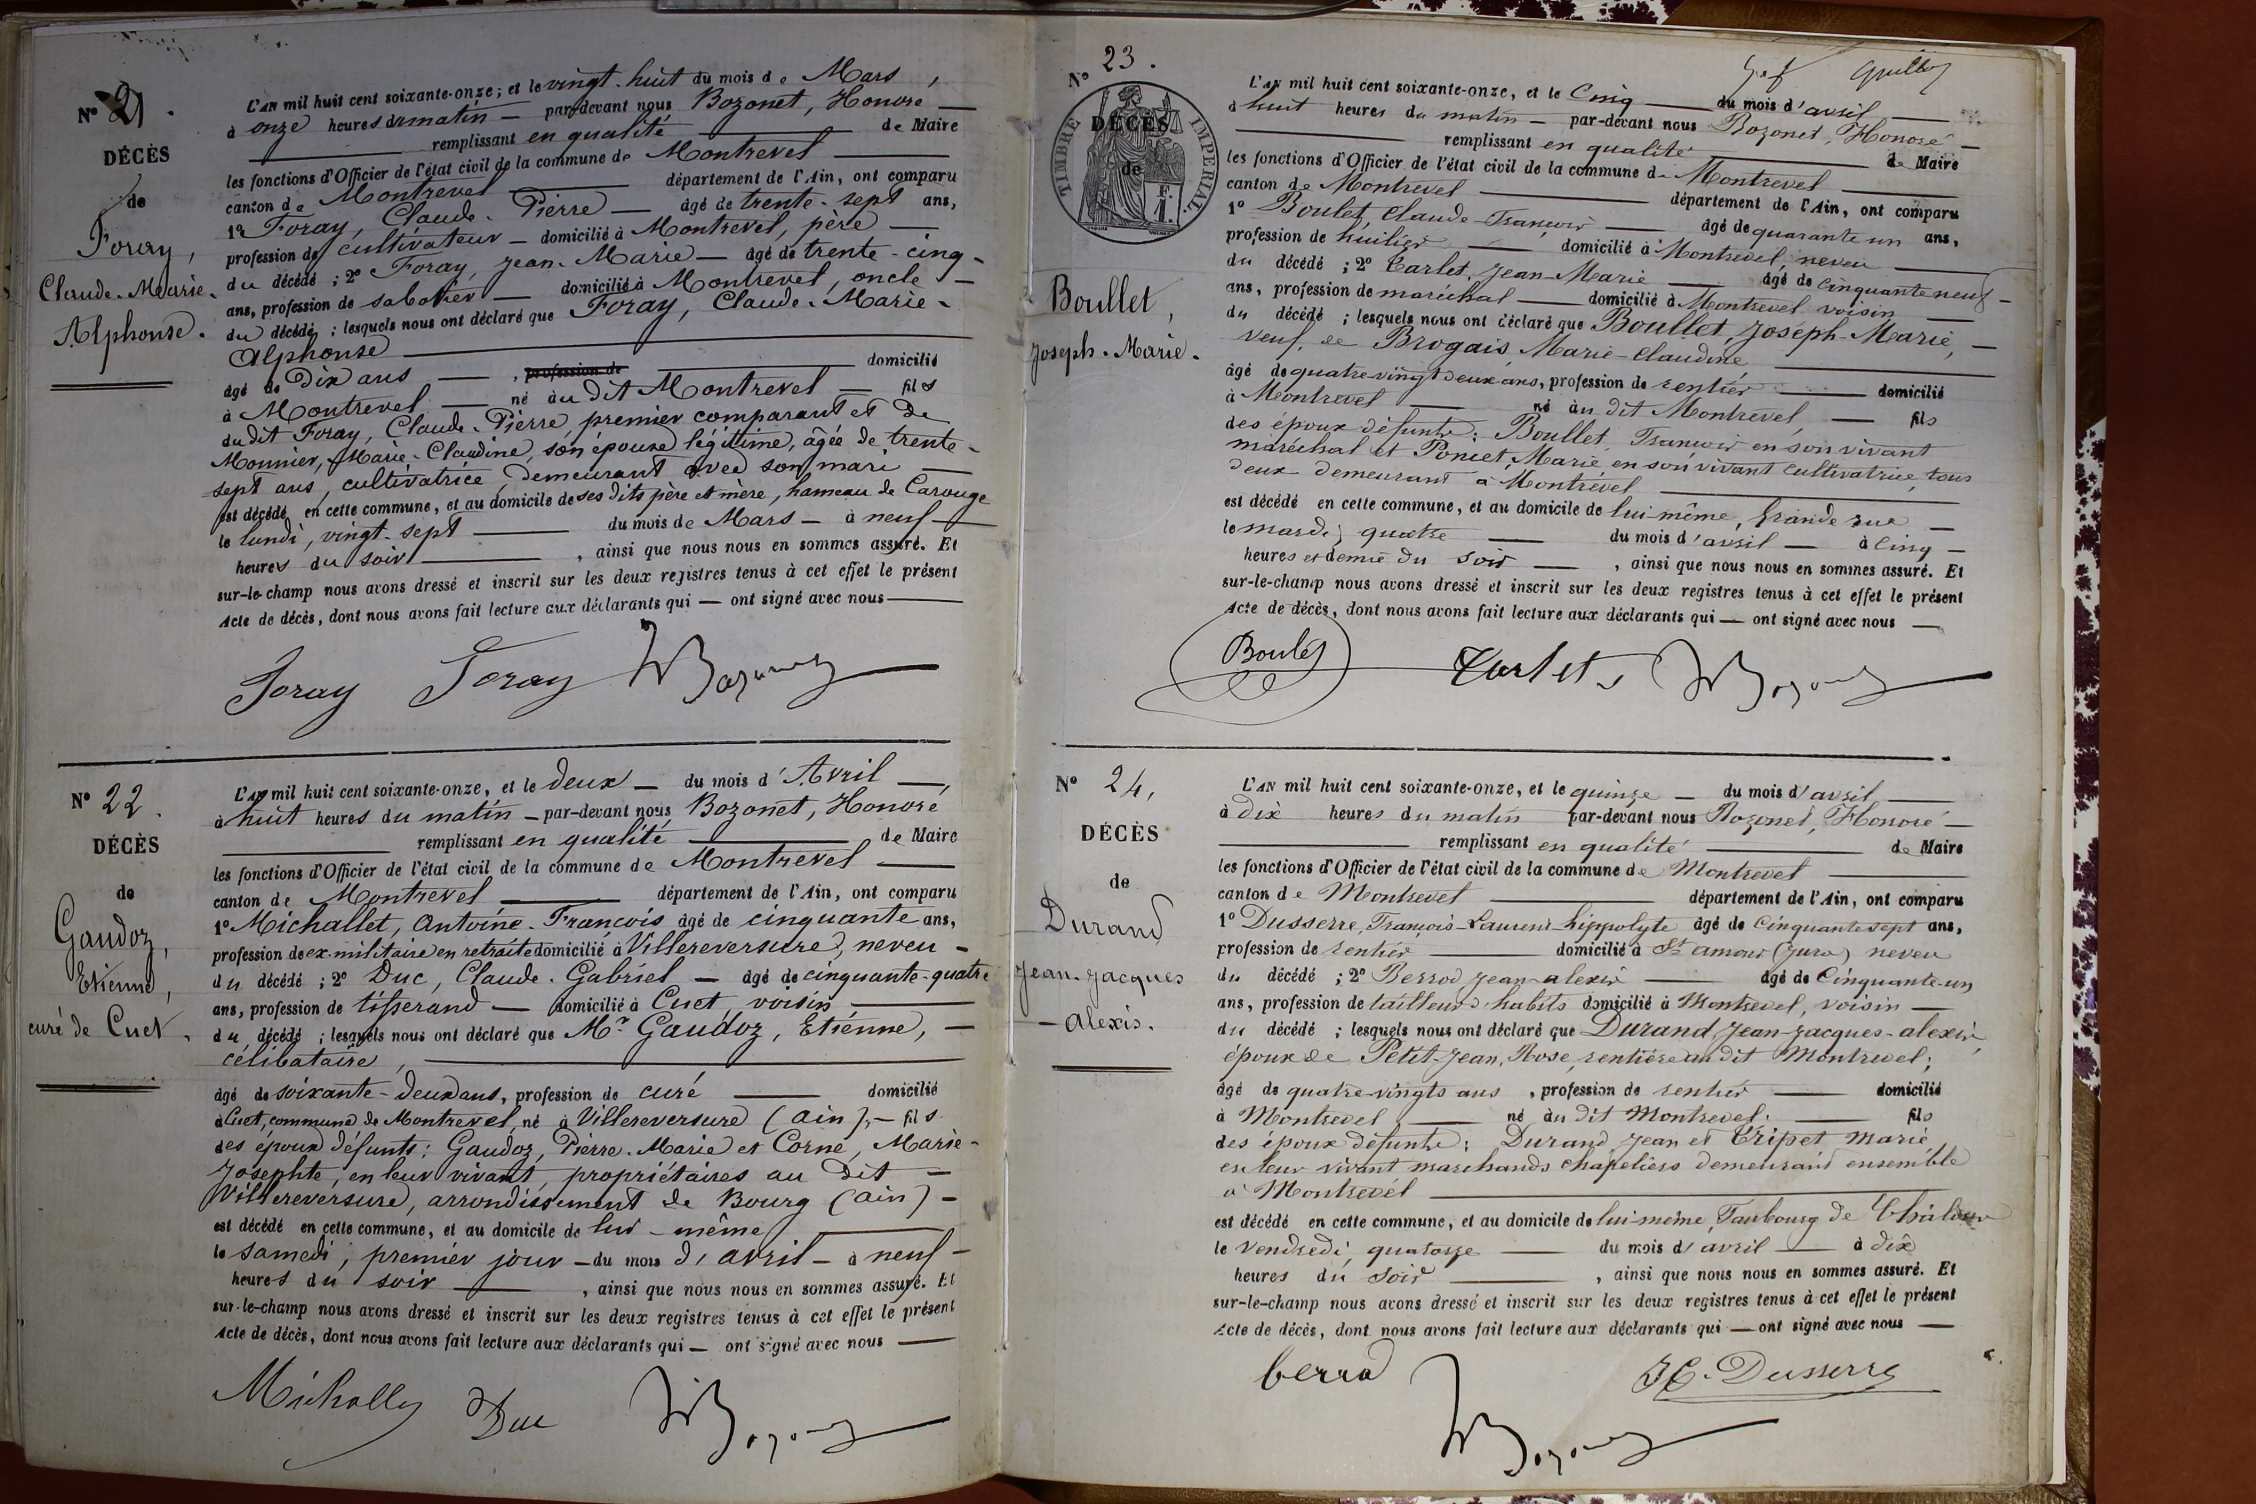 N° 21.
DÉCÈS
de
Foray,
Claude-Marie-
Alphonse.
L'AN mil huit cent soixante-onze; et le vingt-huit du mois de Mars,
à onze heures du matin — par-devant nous Bozonet, Honoré —
remplissant en qualité — de Maire
les fonctions d'Officier de l'état civil de la commune de Montrevel —
canton de Montrevel — département de l'Ain, ont comparu
1° Foray, Claude-Pierre — âgé de trente-sept ans,
profession de cultivateur — domicilié à Montrevel, père —
du décédé; 2° Foray, Jean-Marie — âgé de trente-cinq-
ans, profession de sabotier — domicilié à Montrevel, oncle —
du décédé; lesquels nous ont déclaré que Foray, Claude-Marie-
Alphonse —
âgé de Dix ans —, profession de — domicilié
à Montrevel — né au dit Montrevel — fils
du dit Foray, Claude-Pierre, premier comparant et de
Monnier, Marie-Claudine, son épouse légitime, âgée de trente-
sept ans, cultivatrice, demeurant avec son mari —
est décédé en cette commune, et au domicile de ses dits père et mère, hameau de Carouge
le lundi, vingt-sept — du mois de Mars — à neuf —
heures du soir —, ainsi que nous nous en sommes assuré. Et
sur-le-champ nous avons dressé et inscrit sur les deux registres tenus à cet effet le présent
Acte de décès, dont nous avons fait lecture aux déclarants qui — ont signé avec nous —
Foray Foray H Bozonet
N° 22.
DÉCÈS
de
Gaudoz,
Etienne,
curé de Cuet.
L'AN mil huit cent soixante-onze, et le deux — du mois d'Avril —,
à huit heures du matin — par-devant nous Bozonet, Honoré
remplissant en qualité — de Maire
les fonctions d'Officier de l'état civil de la commune de Montrevel —
canton de Montrevel — département de l'Ain, ont comparu
1° Michallet, Antoine-François âgé de cinquante ans,
profession de ex-militaire en retraite domicilié à Villereversure, neveu -
du décédé; 2° Duc, Claude-Gabriel — âgé de cinquante-quatre
ans, profession de tisserand — domicilié à Cuet, voisin —
du décédé; lesquels nous ont déclaré que Mr Gaudoz, Etienne, —
célibataire, —
âgé de soixante-deux ans, profession de curé — domicilié
à Cuet, commune de Montrevel, né à Villereversure (Ain), — fils
des époux défunts: Gaudoz, Pierre-Marie et Corne, Marie-
Josephte, en leur vivant, propriétaires au dit —
Villereversure, arrondissement de Bourg (Ain) —
est décédé en cette commune, et au domicile de lui-même —
le samedi, premier jour — du mois d'avril — à neuf —
heures du soir —, ainsi que nous nous en sommes assuré. Et
sur-le-champ nous avons dressé et inscrit sur les deux registres tenus à cet effet le présent
Acte de décès, dont nous avons fait lecture aux déclarants qui — ont signé avec nous —
Michallet Duc H Bozonet
N° 23.
TIMBRE IMPÉRIAL
DÉCÈS
de
1 F.
Boullet,
Joseph-Marie.
L'AN mil huit cent soixante-onze, et le Cinq — du mois d'avril —
à huit heures du matin — par-devant nous Bozonet, Honoré —
remplissant en qualité — de Maire
les fonctions d'Officier de l'état civil de la commune de Montrevel —
canton de Montrevel — département de l'Ain, ont comparu
1° Boulet, Claude-François — âgé de quarante un ans,
profession de huilier — domicilié à Montrevel, neveu —
du décédé; 2° Tarlet, Jean-Marie — âgé de Cinquante neuf —
ans, profession de maréchal — domicilié à Montrevel, voisin —
du décédé; lesquels nous ont déclaré que Boullet, Joseph-Marie, —
veuf, de Brogais, Marie-Claudine, —
âgé de quatre-vingt deux ans, profession de rentier — domicilié
à Montrevel — né au dit Montrevel, — fils
des époux défunts: Boullet, François en son vivant
maréchal et Poncet, Marie, en son vivant cultivatrice, tous
deux demeurant à Montrevel —
est décédé en cette commune, et au domicile de lui-même, Grande rue —
le mardi, quatre — du mois d'avril — à cinq —
heures et demie du soir —, ainsi que nous nous en sommes assuré. Et
sur-le-champ nous avons dressé et inscrit sur les deux registres tenus à cet effet le présent
Acte de décès, dont nous avons fait lecture aux déclarants qui — ont signé avec nous —
Boulet Tarlet H Bozonet
N° 24,
DÉCÈS
de
Durand
Jean-Jacques
-Alexis.
L'AN mil huit cent soixante-onze, et le quinze — du mois d'avril —
à dix heures du matin par-devant nous Bozonet, Honoré —
remplissant en qualité — de Maire
les fonctions d'Officier de l'état civil de la commune de Montrevel —
canton de Montrevel — département de l'Ain, ont comparu
1° Dusserre, François-Laurent hippolyte âgé de Cinquante sept ans,
profession de rentier — domicilié à St amour (Jura) neveu
du décédé; 2° Berrod Jean-alexis — âgé de Cinquante-un
ans, profession de tailleur d'habits domicilié à Montrevel, voisin —
du décédé; lesquels nous ont déclaré que Durand, Jean-Jacques-alexis,
époux de Petit-Jean, Rose, rentière au dit Montrevel;
âgé de quatre-vingts ans, profession de rentier — domicilié
à Montrevel — né au dit Montrevel; — fils
des époux défunts: Durand Jean et Tripet Marie,
en leur vivant marchands chapeliers demeurant ensemble
à Montrevel —
est décédé en cette commune, et au domicile de lui-même, Faubourg de Châlon
le vendredi, quatorze — du mois d'avril — à dix
heures du soir —, ainsi que nous nous en sommes assuré. Et
sur-le-champ nous avons dressé et inscrit sur les deux registres tenus à cet effet le présent
Acte de décès, dont nous avons fait lecture aux déclarants qui — ont signé avec nous —
berrod H. Dusserre
H Bozonet